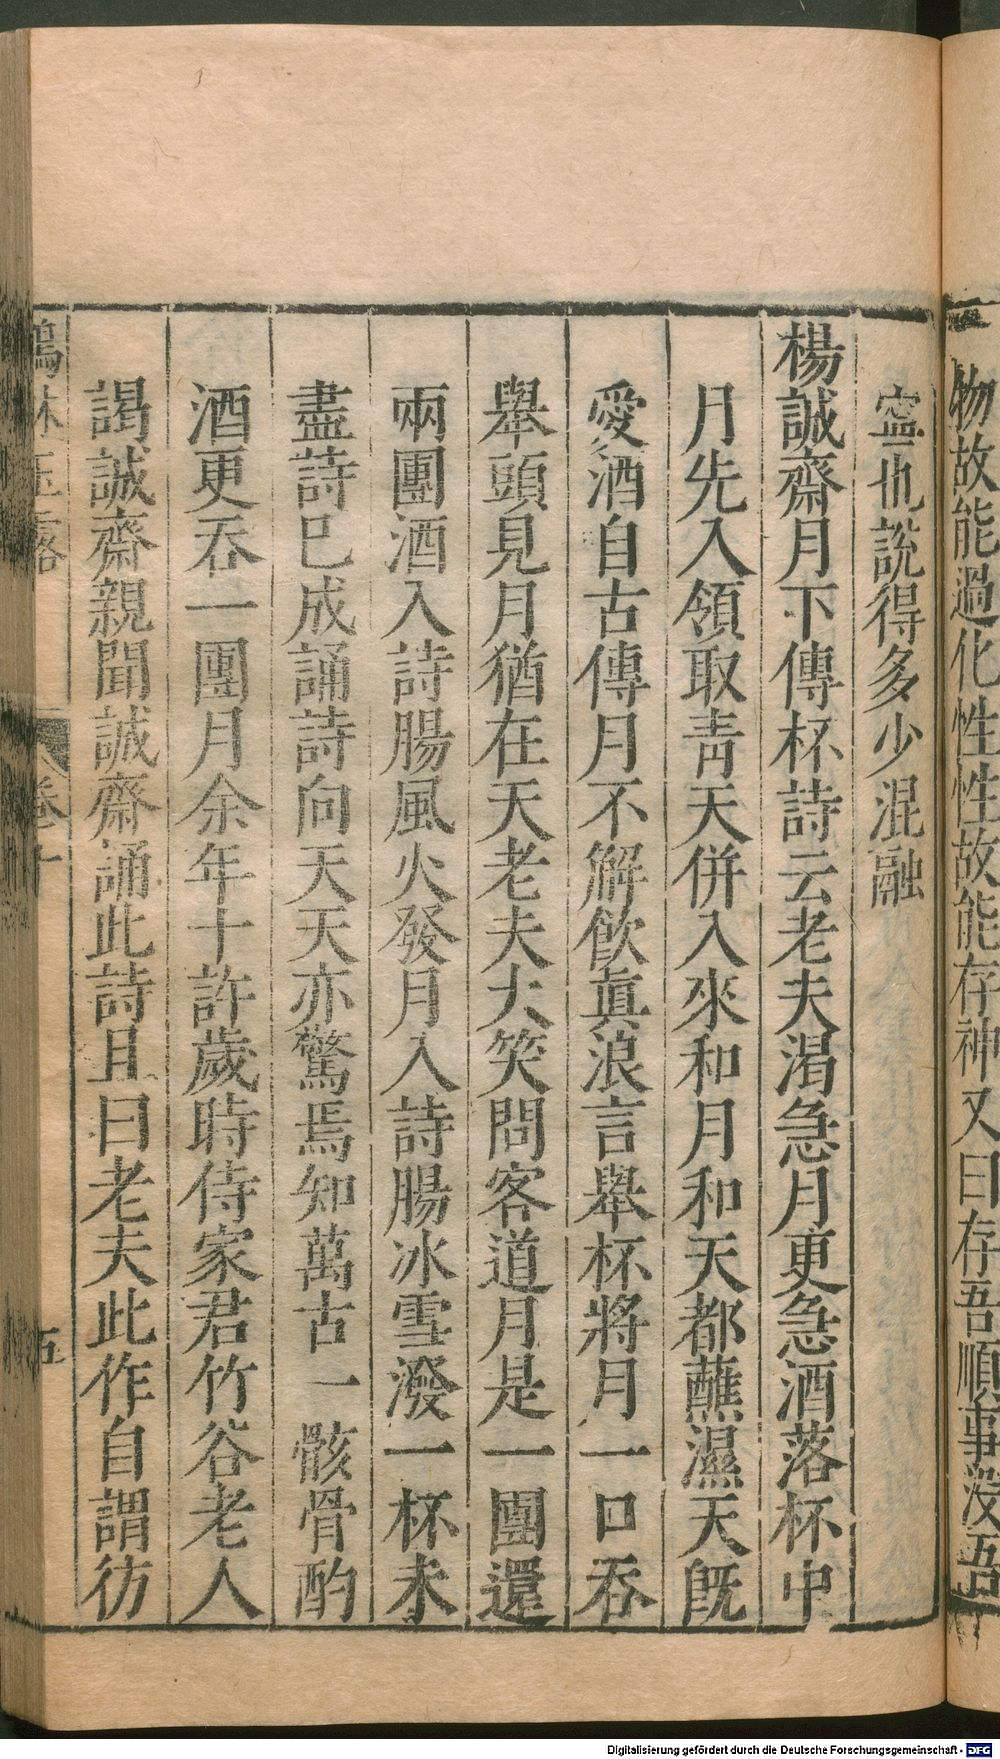 物故能過化性性故能存神又曰存吾順事沒吾
寧也說得多少混融
楊誠齋月下傳杯詩云老夫渴急月更急酒落杯中
月先入領取青天併入來和月和天都蘸濕天既
愛酒自古傳月不解飲眞浪言舉杯將月一口吞
舉頭見月猶在天老夫大笑問客道月是一團還
兩團酒入詩腸風火發月入詩腸冰雪潑一杯未
盡詩已成誦詩向天天亦驚焉知萬古一骸骨酌
酒更吞一團月余年十許歲時侍家君竹谷老人
謁誠齋親聞誠齋誦此詩且曰老夫此作自謂彷
鶴林玉露 卷十 五
Digitalisierung gefördert durch die Deutsche Forschungsgemeinschaft - DFG